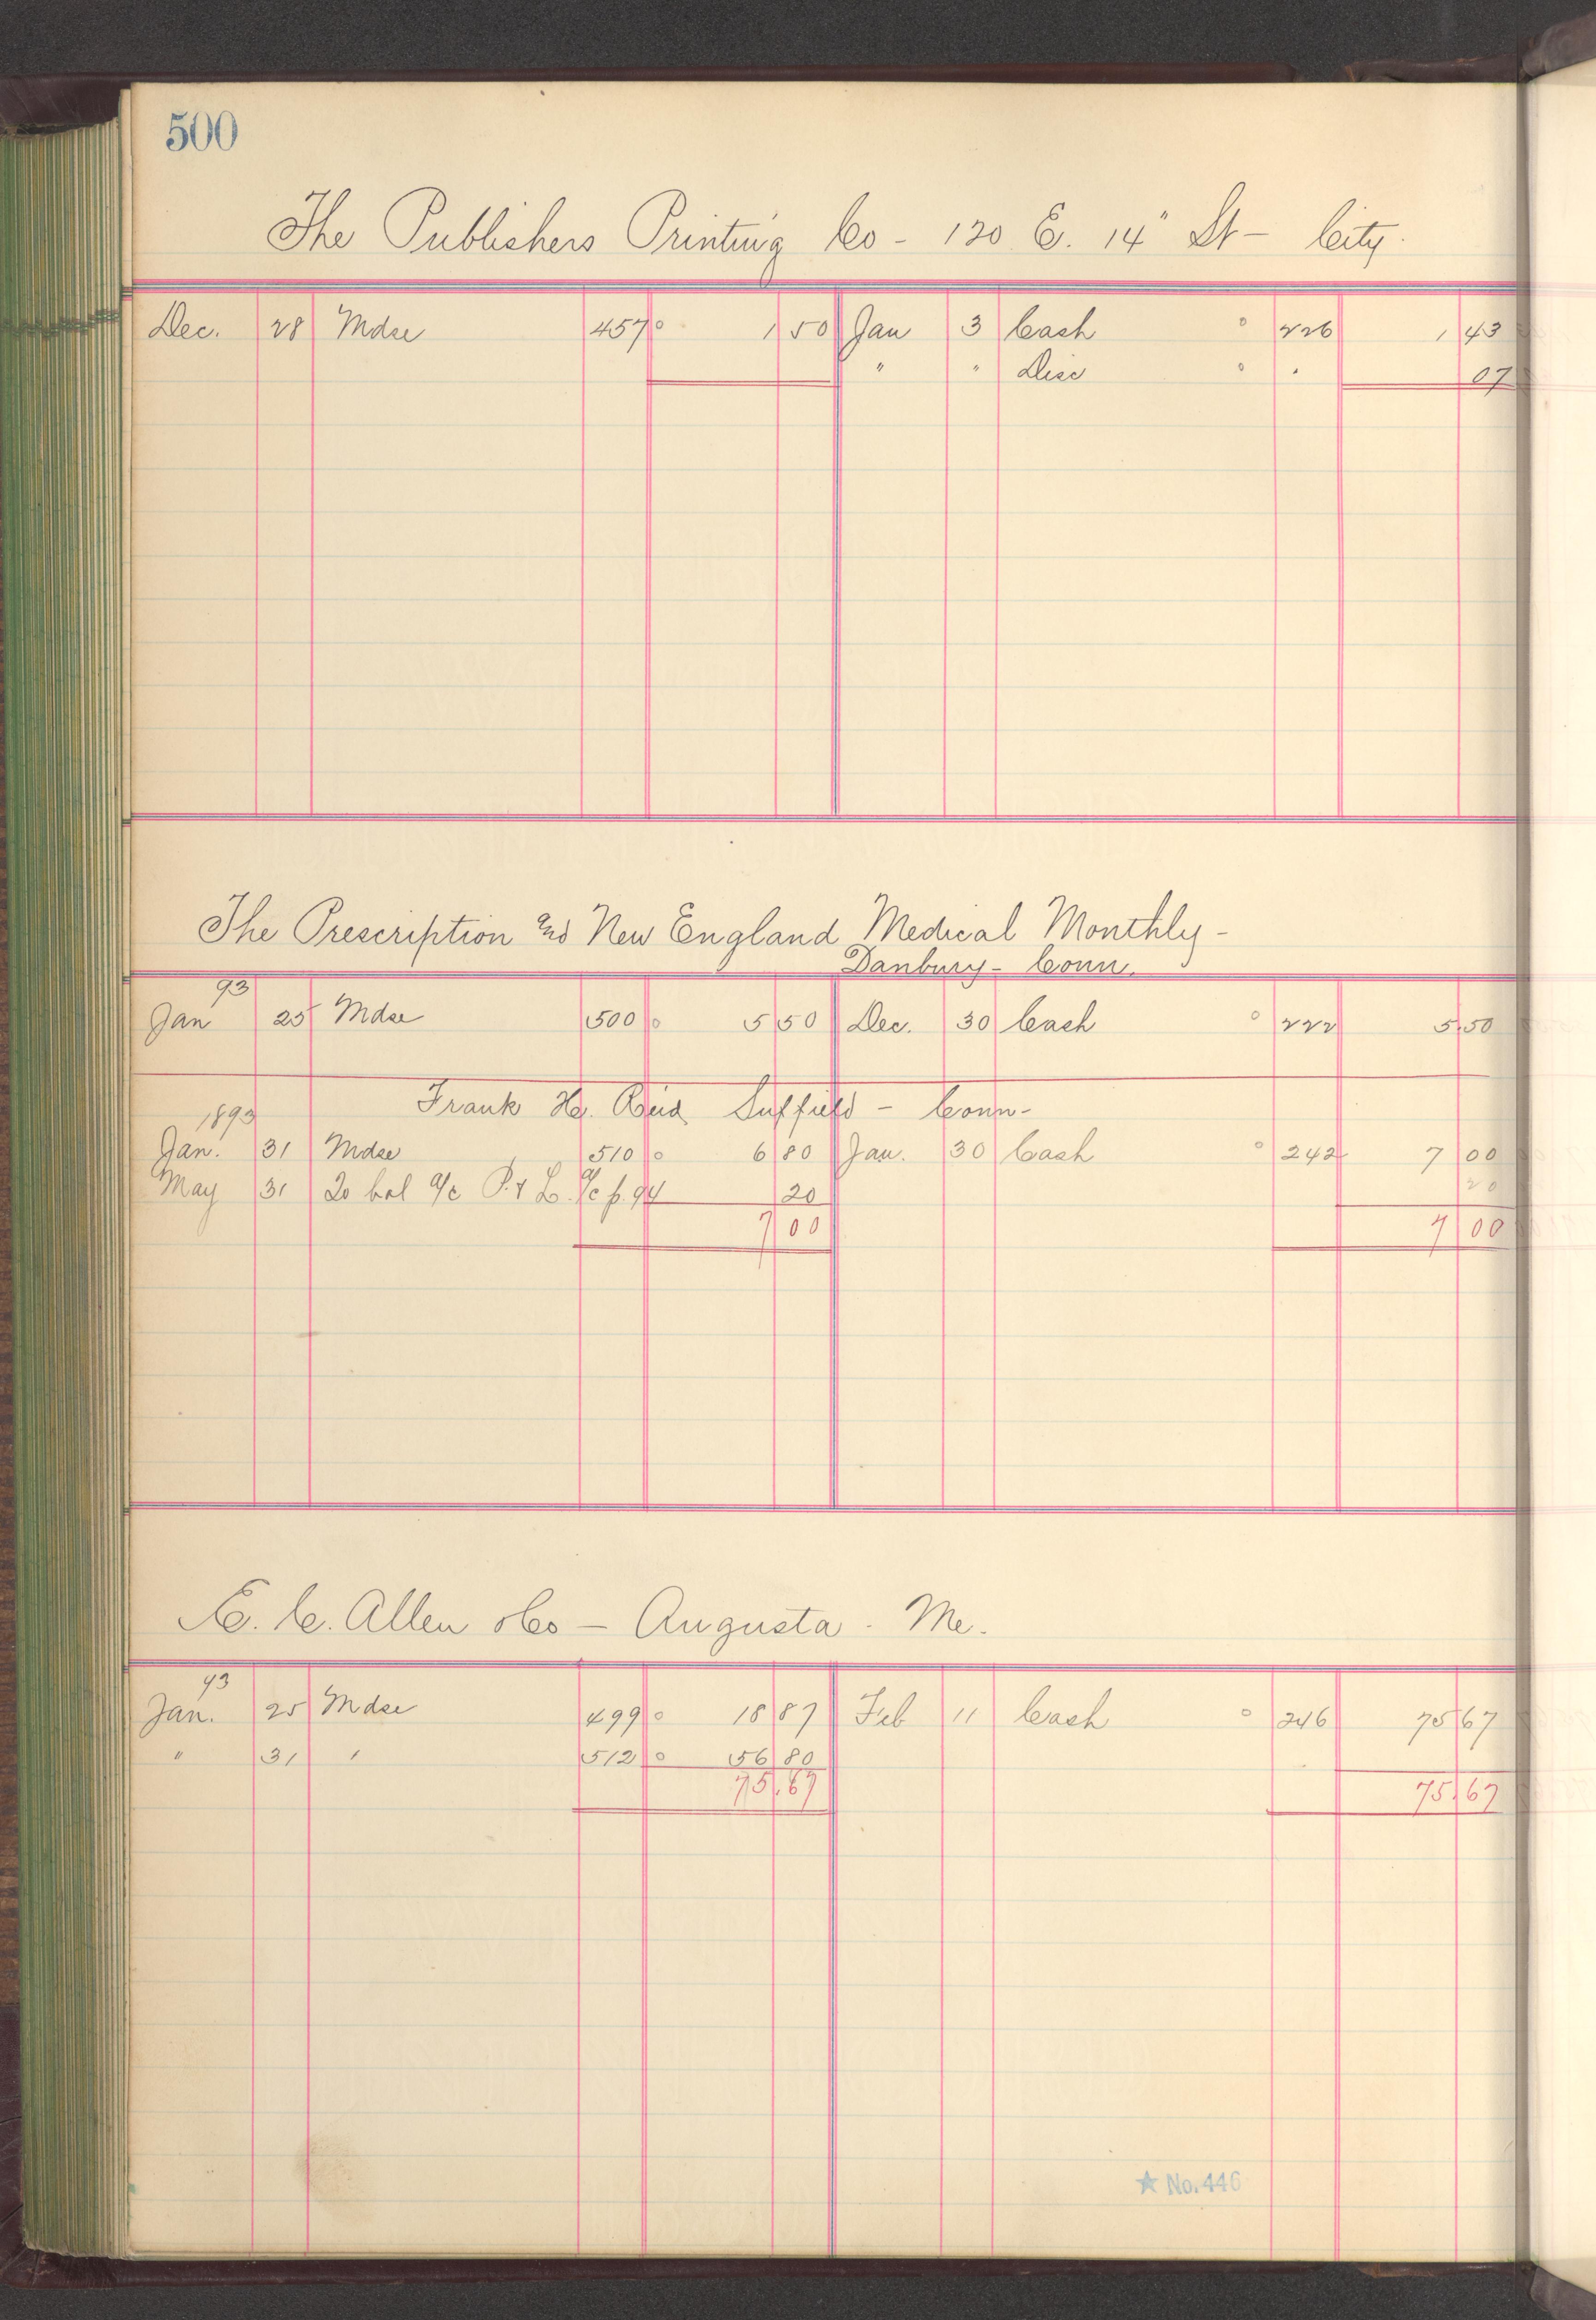 500
The Publishers Printing Co - 120 E. 14" St - City.
Dec. 28 Mdse 457 0 1 50 Jan 3 Cash 0 226 1 43
" " Disc 0 " 07
The Prescription and New England Medical Monthly -
Danbury - Conn.
93
Jan 25 Mdse 500 0 5 50 Dec. 30 Cash 0 222 5 50
Frank H. Suffield - Conn -
1893
Jan. 31 Mdse 510 0 6 80 Jan. 30 Cash 0 242 7 00
May 31 To bal a/c P. & L. a/c p. 94 20
20
7 00 7 00
E. C. Allen & Co - Augusta - Me.
93
Jan. 25 Mdse 499 0 18 87 Feb 11 Cash 0 246 75 67
" 31 " 512 0 56 80
75.67 75.67
★ No. 446